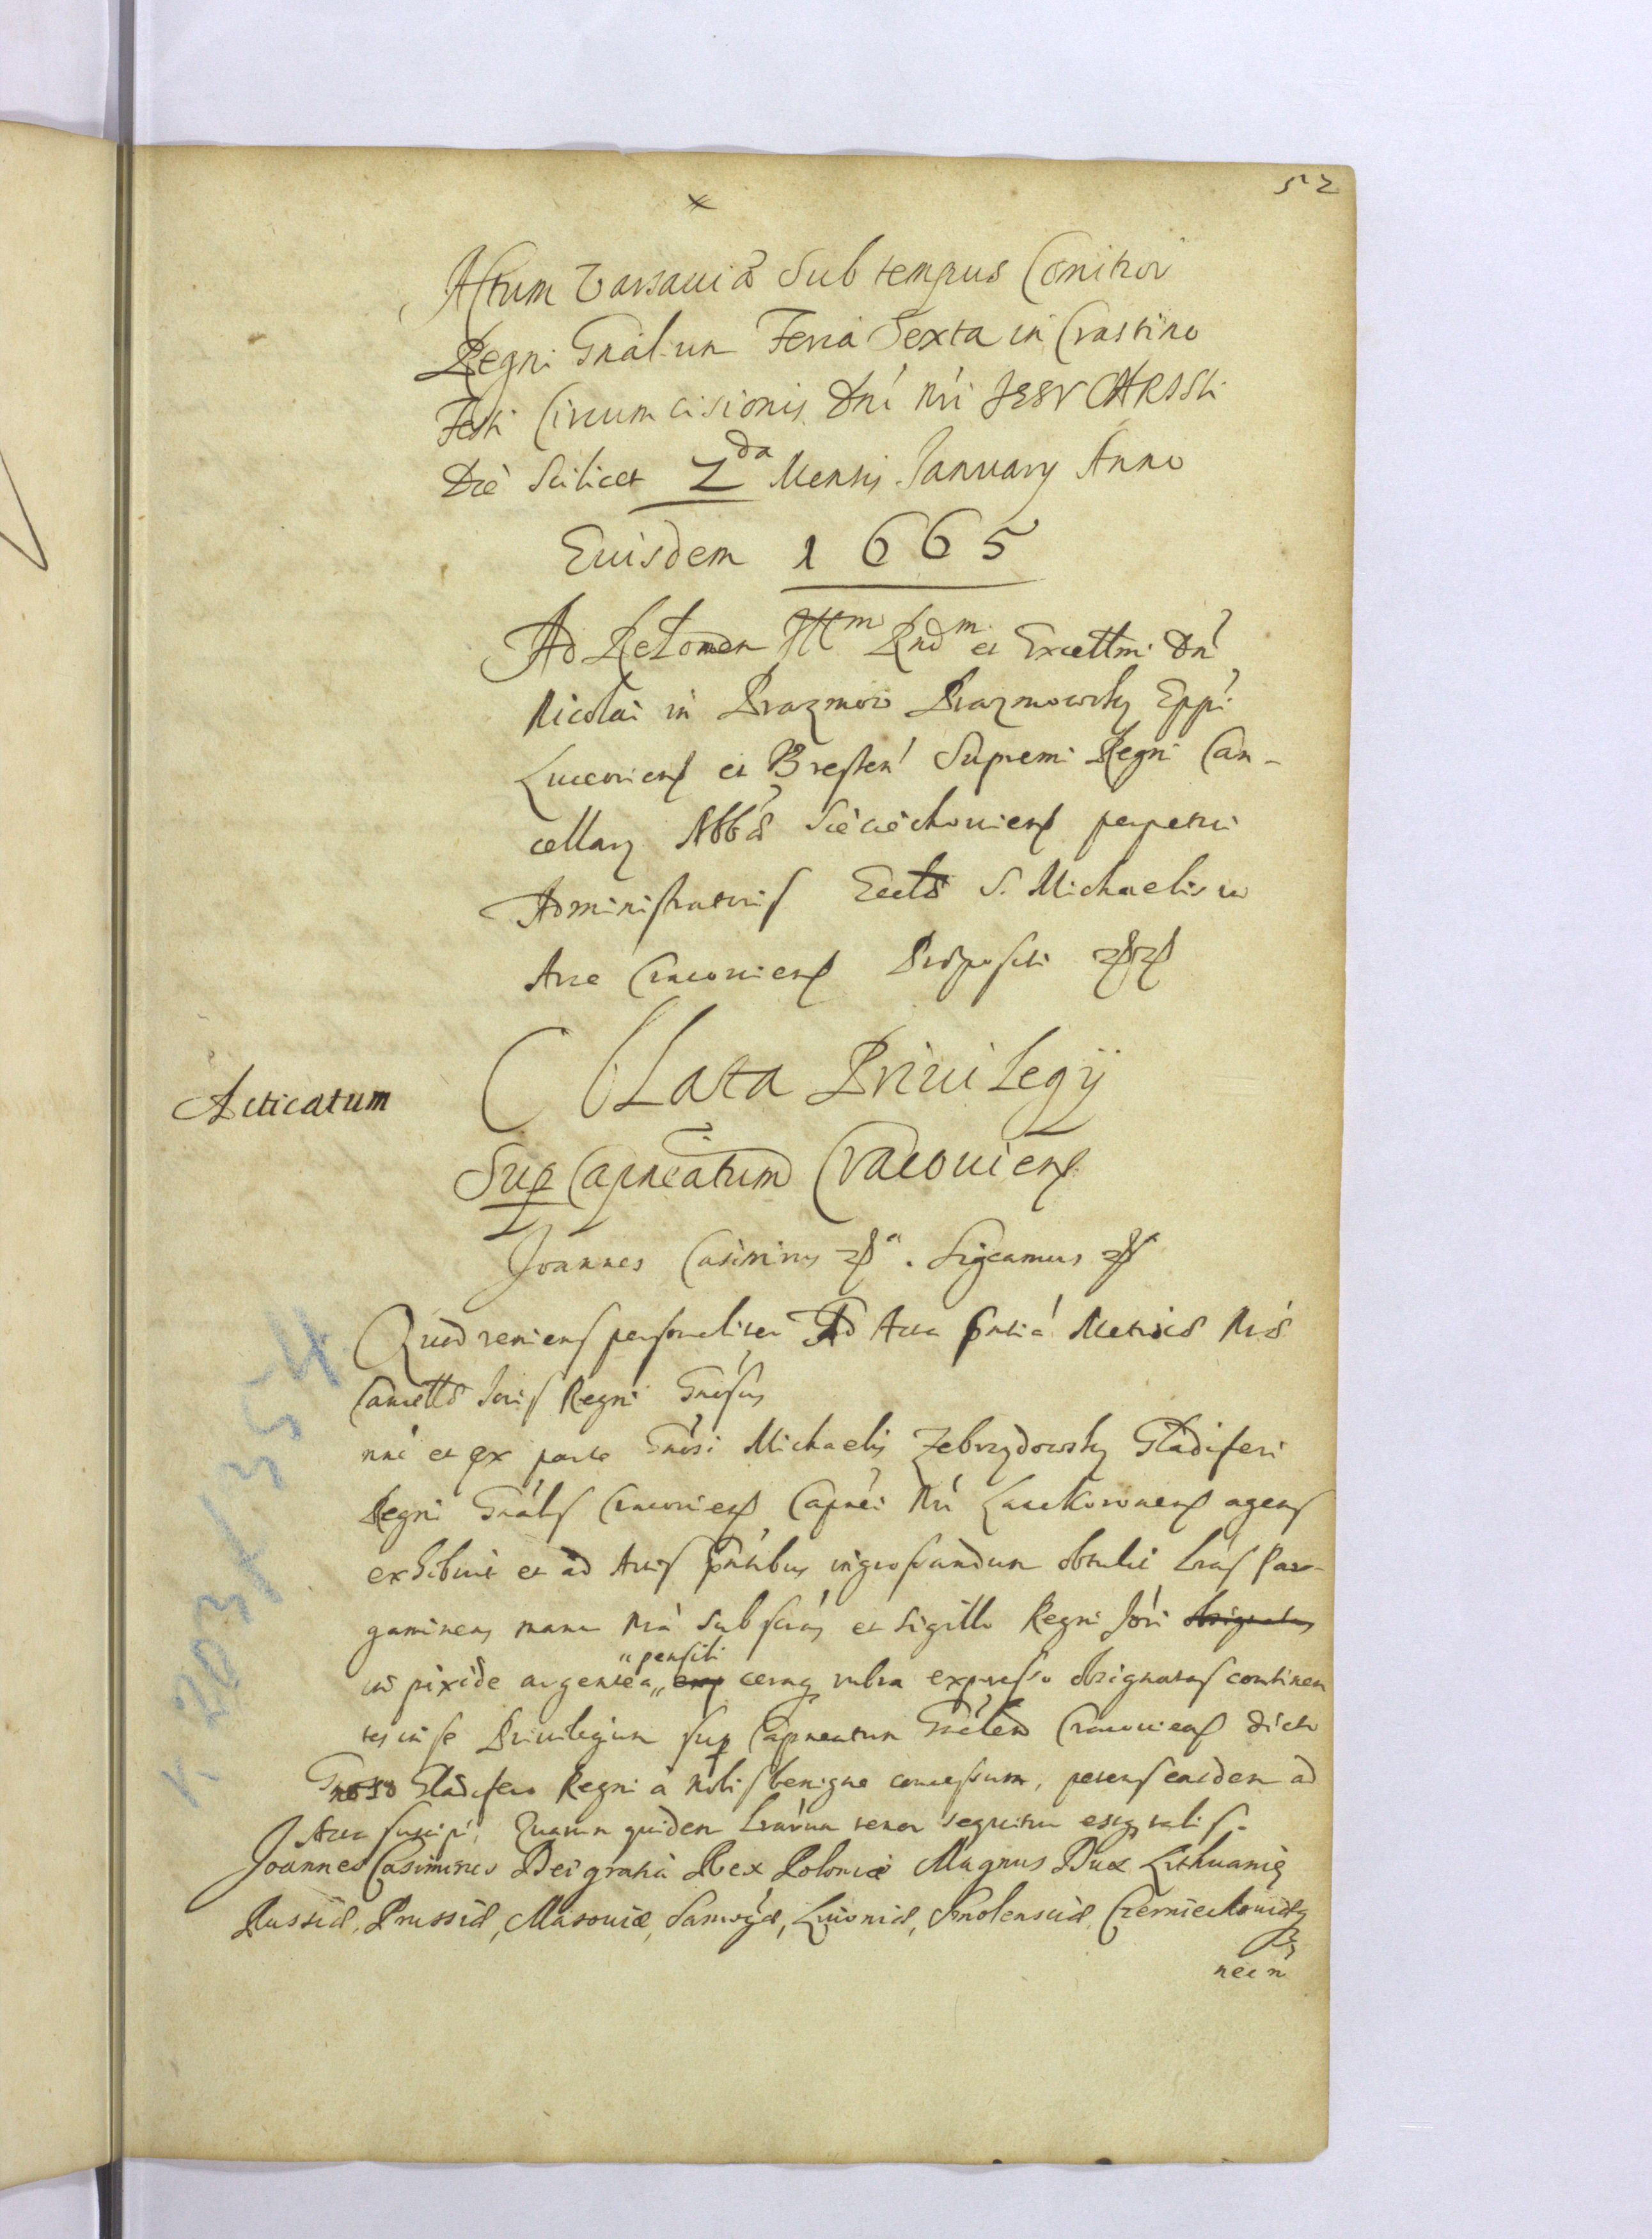 52
Actum Varsaviæ Sub tempus Comitior
Regni Gnalium Feria Sexta in Crastino
Festi Circumcisionis Dni Nri JESV CHRISti
Die Scilicet 2da Mensis January Anno
Euisdem 1665
Ad Relonem Illm Rndm et Excellmi Dni
Nicolai in Prazmow Prazmowsky Eppi
Luceoriens et Bresten Supremi Regni Can-
cellary Abbæ Sieciechouiens perpetui
Administratoris Eccle S. Michaelis in
Arce Cracouiens Præpositi
Acticatum
Oblata Priuilegij
Sup Capneatum Cracouiens
Joannes Casimirus . Sigcamus
Quod veniens personaliter Ad Acta pntia Metrices Nræ
Cancellæ Regni Gnosus
nni et ex parte Gnosi Michaelis Zebrzydowsky Gladiferi
Regni Gnals Cracouiens Capnei Nri Lanckoronens agens
exhibuit et ad Actis pntibus ingrossandum obtulit Lras Par-
gamineas manu Nra subscras et Sigillo Regni obsignatas
in pixide argentea pensili ceraq rubra expresso obsignatas continen
tes in se Priuilegium sup Capneatum Gnalem Cracouiens dicto
Gnoso Gladifero Regni a Nobis benigne concessum, petens easdem ad
Acta suscipi, Quarum quidem Lrarum tenor sequitur estq talis.
Joannes Casimirus Dei gratia Rex Poloniæ Magnus Dux Lithuaniæ
Russiæ, Prussiæ, Masouiæ, Samogæ, Liuoniæ, Smolensciæ, Czerniechouiæq
nec n
K. 203/354